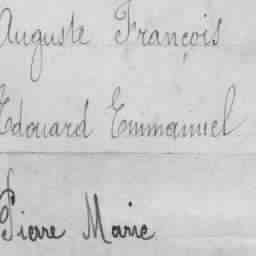 Auguste François
Edouard Emmanuel
Pierre Marie